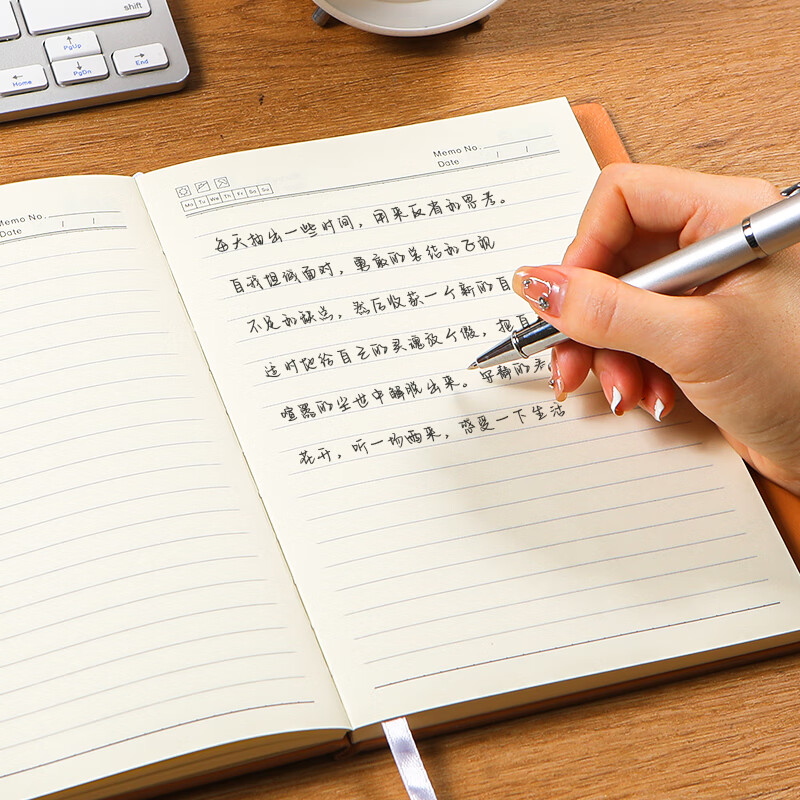 shift
PgUp
Home
PgDn
End
Memo No.
Date / /
Memo No.
Date / /
Mo Tu We Th Fr Sa Su
每天抽出一些时间，用来反省和思考。
自我坦诚面对，勇敢的总结和正视
不足和缺点，然后收获一个新的自
适时地给自己的灵魂放个假，把自
喧嚣的尘世中解脱出来。安静的看
花开，听一场雨来，感受一下生活